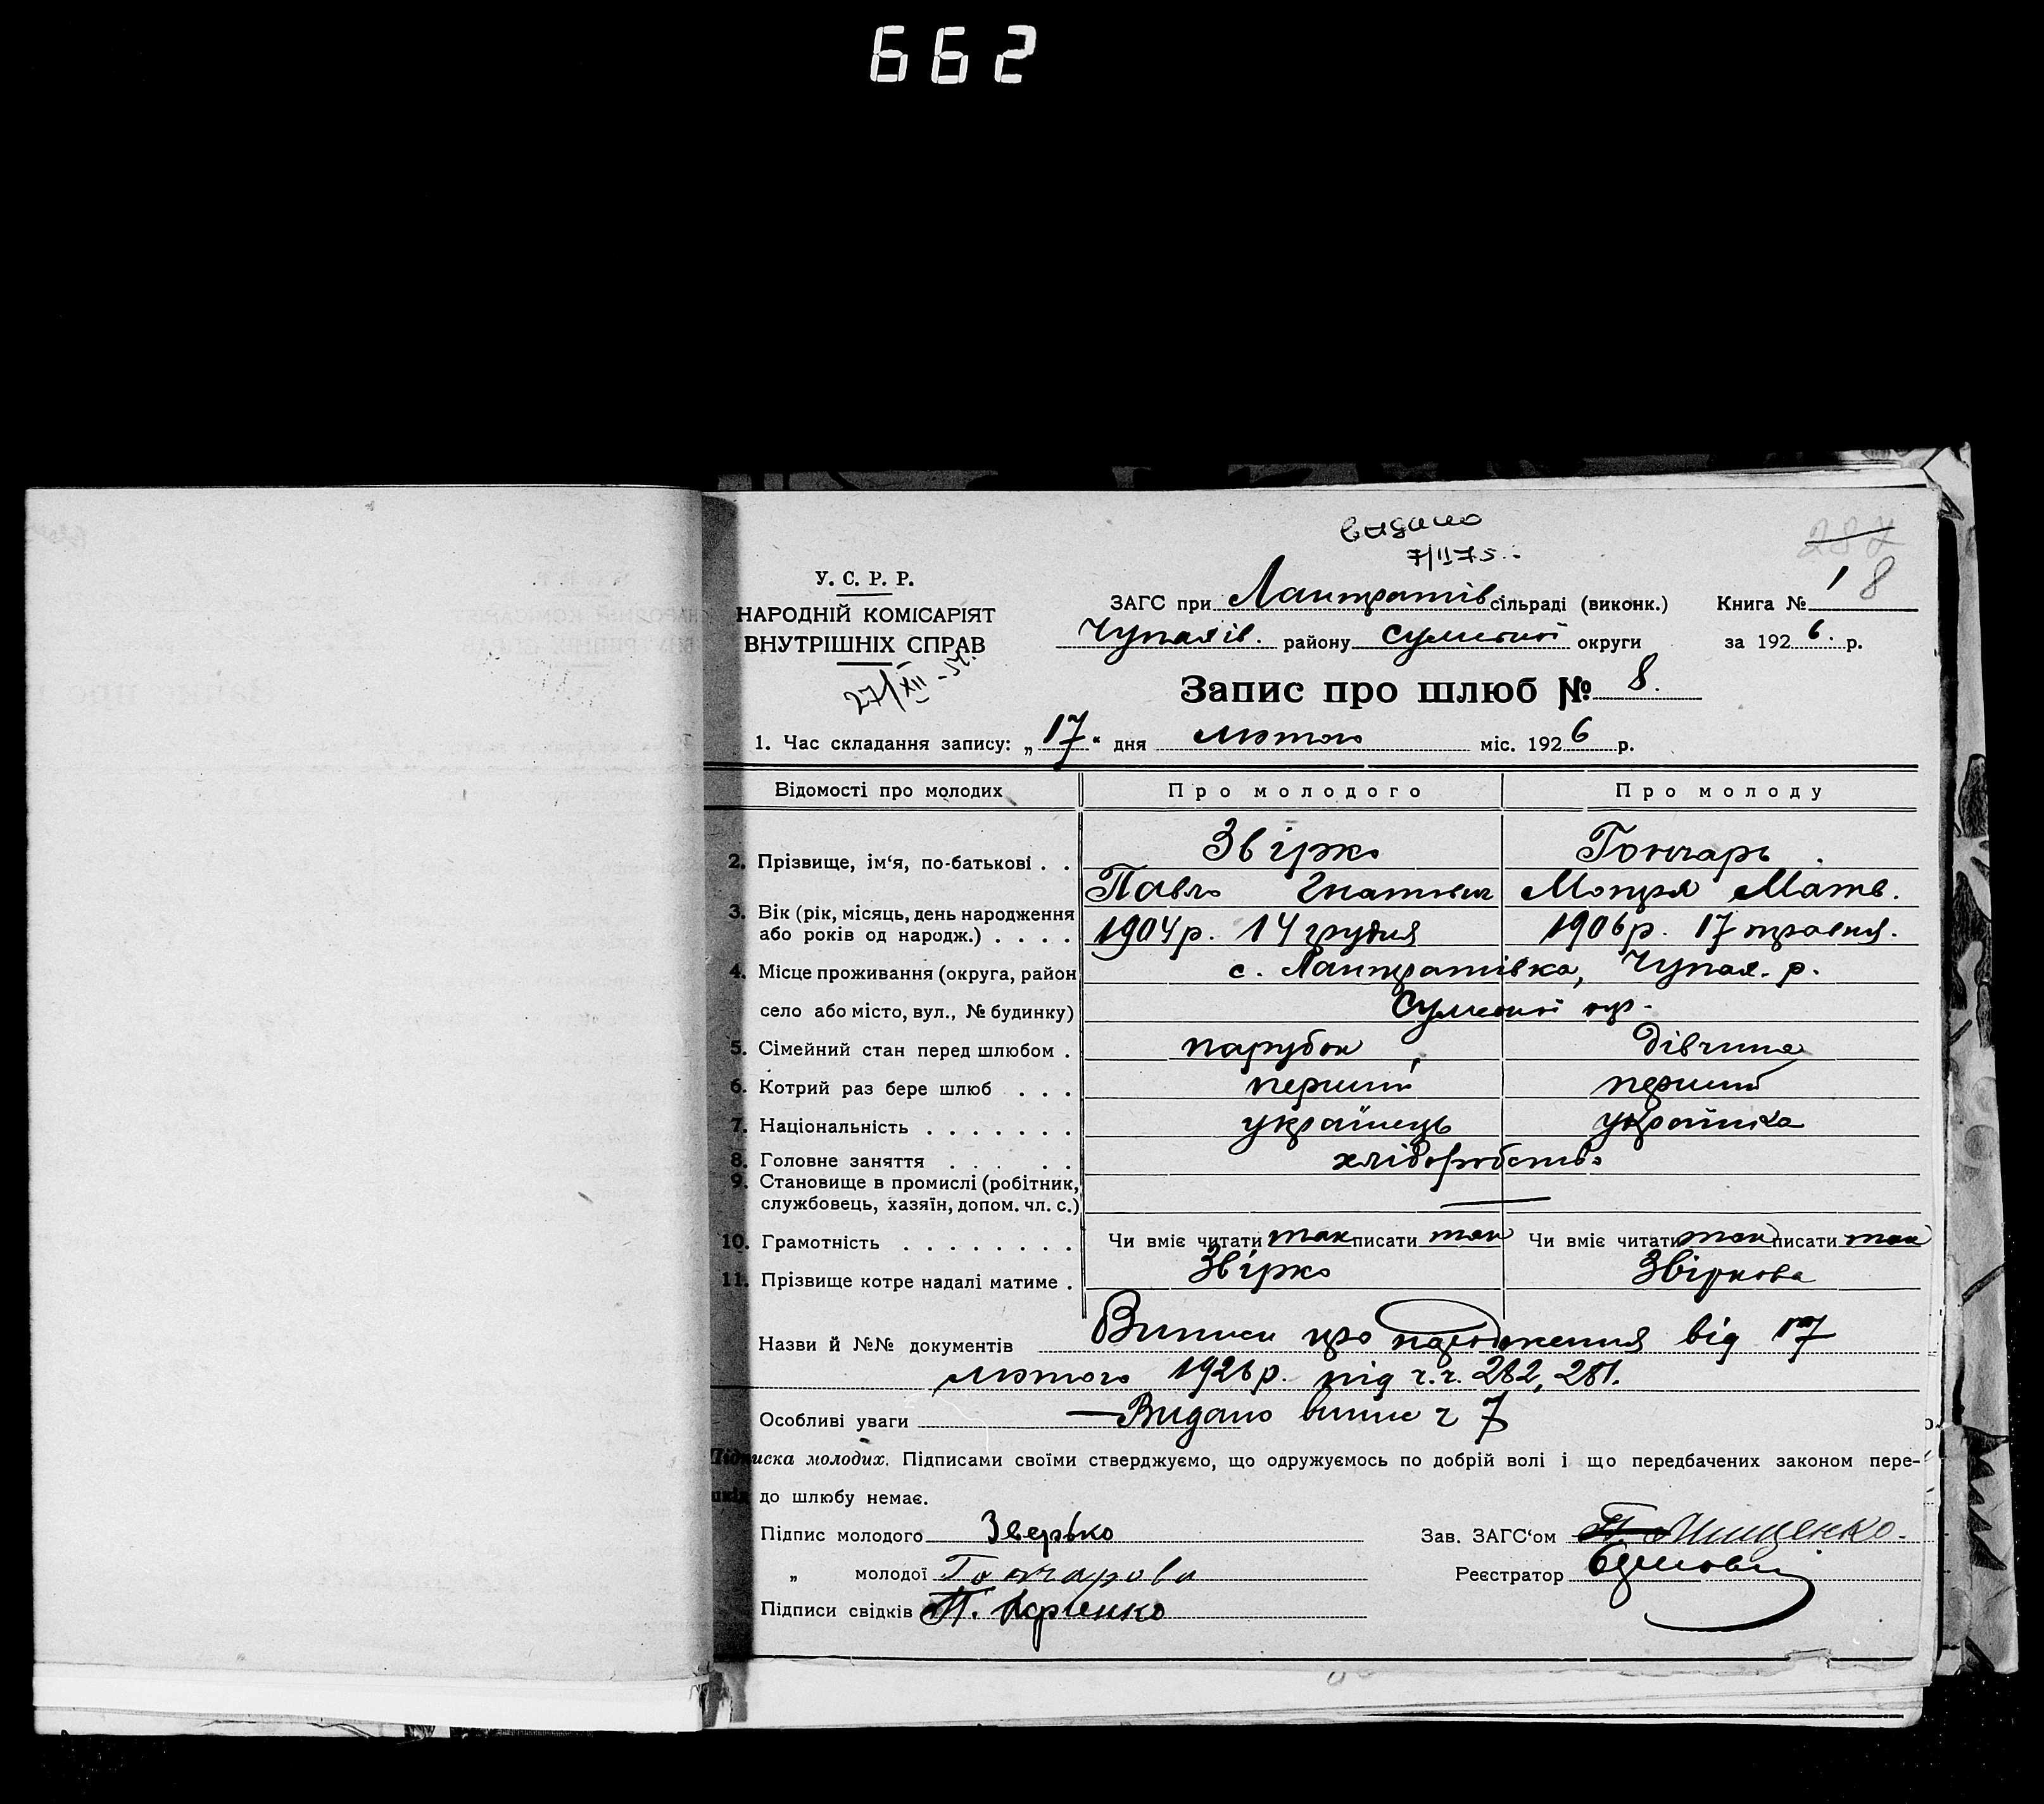 662
видано
7/II 75.
287
8
У. С. Р. Р.
НАРОДНІЙ КОМІСАРІЯТ
ВНУТРІШНІХ СПРАВ
27/XII-54.
ЗАГС при Лантратів сільраді (виконк.) Книга № 1
Чупахів. району Сумської округи за 1926. р.
Запис про шлюб № 8.
1. Час складання запису: „17“ дня лютого міс. 1926 р.
Відомості про молодих Про молодого Про молоду
2. Прізвище, ім‘я, по-батькові . . Звірко Гончарь
Павло Гнатович Мотря Матв.
3. Вік (рік, місяць, день народження
або років од народж.) . . . . 1904 р. 14 грудня 1906 р. 17 травня.
4. Місце проживання (округа, район с. Лантратівка, Чупах. р.
село або місто, вул., № будинку) Сумської окр.
5. Сімейний стан перед шлюбом . парубок дівчина
6. Котрий раз бере шлюб . . . перший перший
7. Національність . . . . . . . українець українка
8. Головне заняття . . . . . хліборобство
9. Становище в промислі (робітник,
службовець, хазяїн, допом. чл. с.) —
10. Грамотність . . . . . . . . Чи вміє читати так писати так Чи вміє читати так писати так
11. Прізвище котре надалі матиме . Звірко Звіркова
Назви й №№ документів Виписи про народження від 17
лютого 1926 р. під ч.ч. 282, 281.
Особливі уваги — Видано випис ч 7
Підписка молодих. Підписами своїми стверджуємо, що одружуємось по добрій волі і що передбачених законом пере-
шкід до шлюбу немає.
Підпис молодого Зверько Зав. ЗАГС‘ом Мищенко.
„ молодої Гончарова Реєстратор
Підписи свідків П.